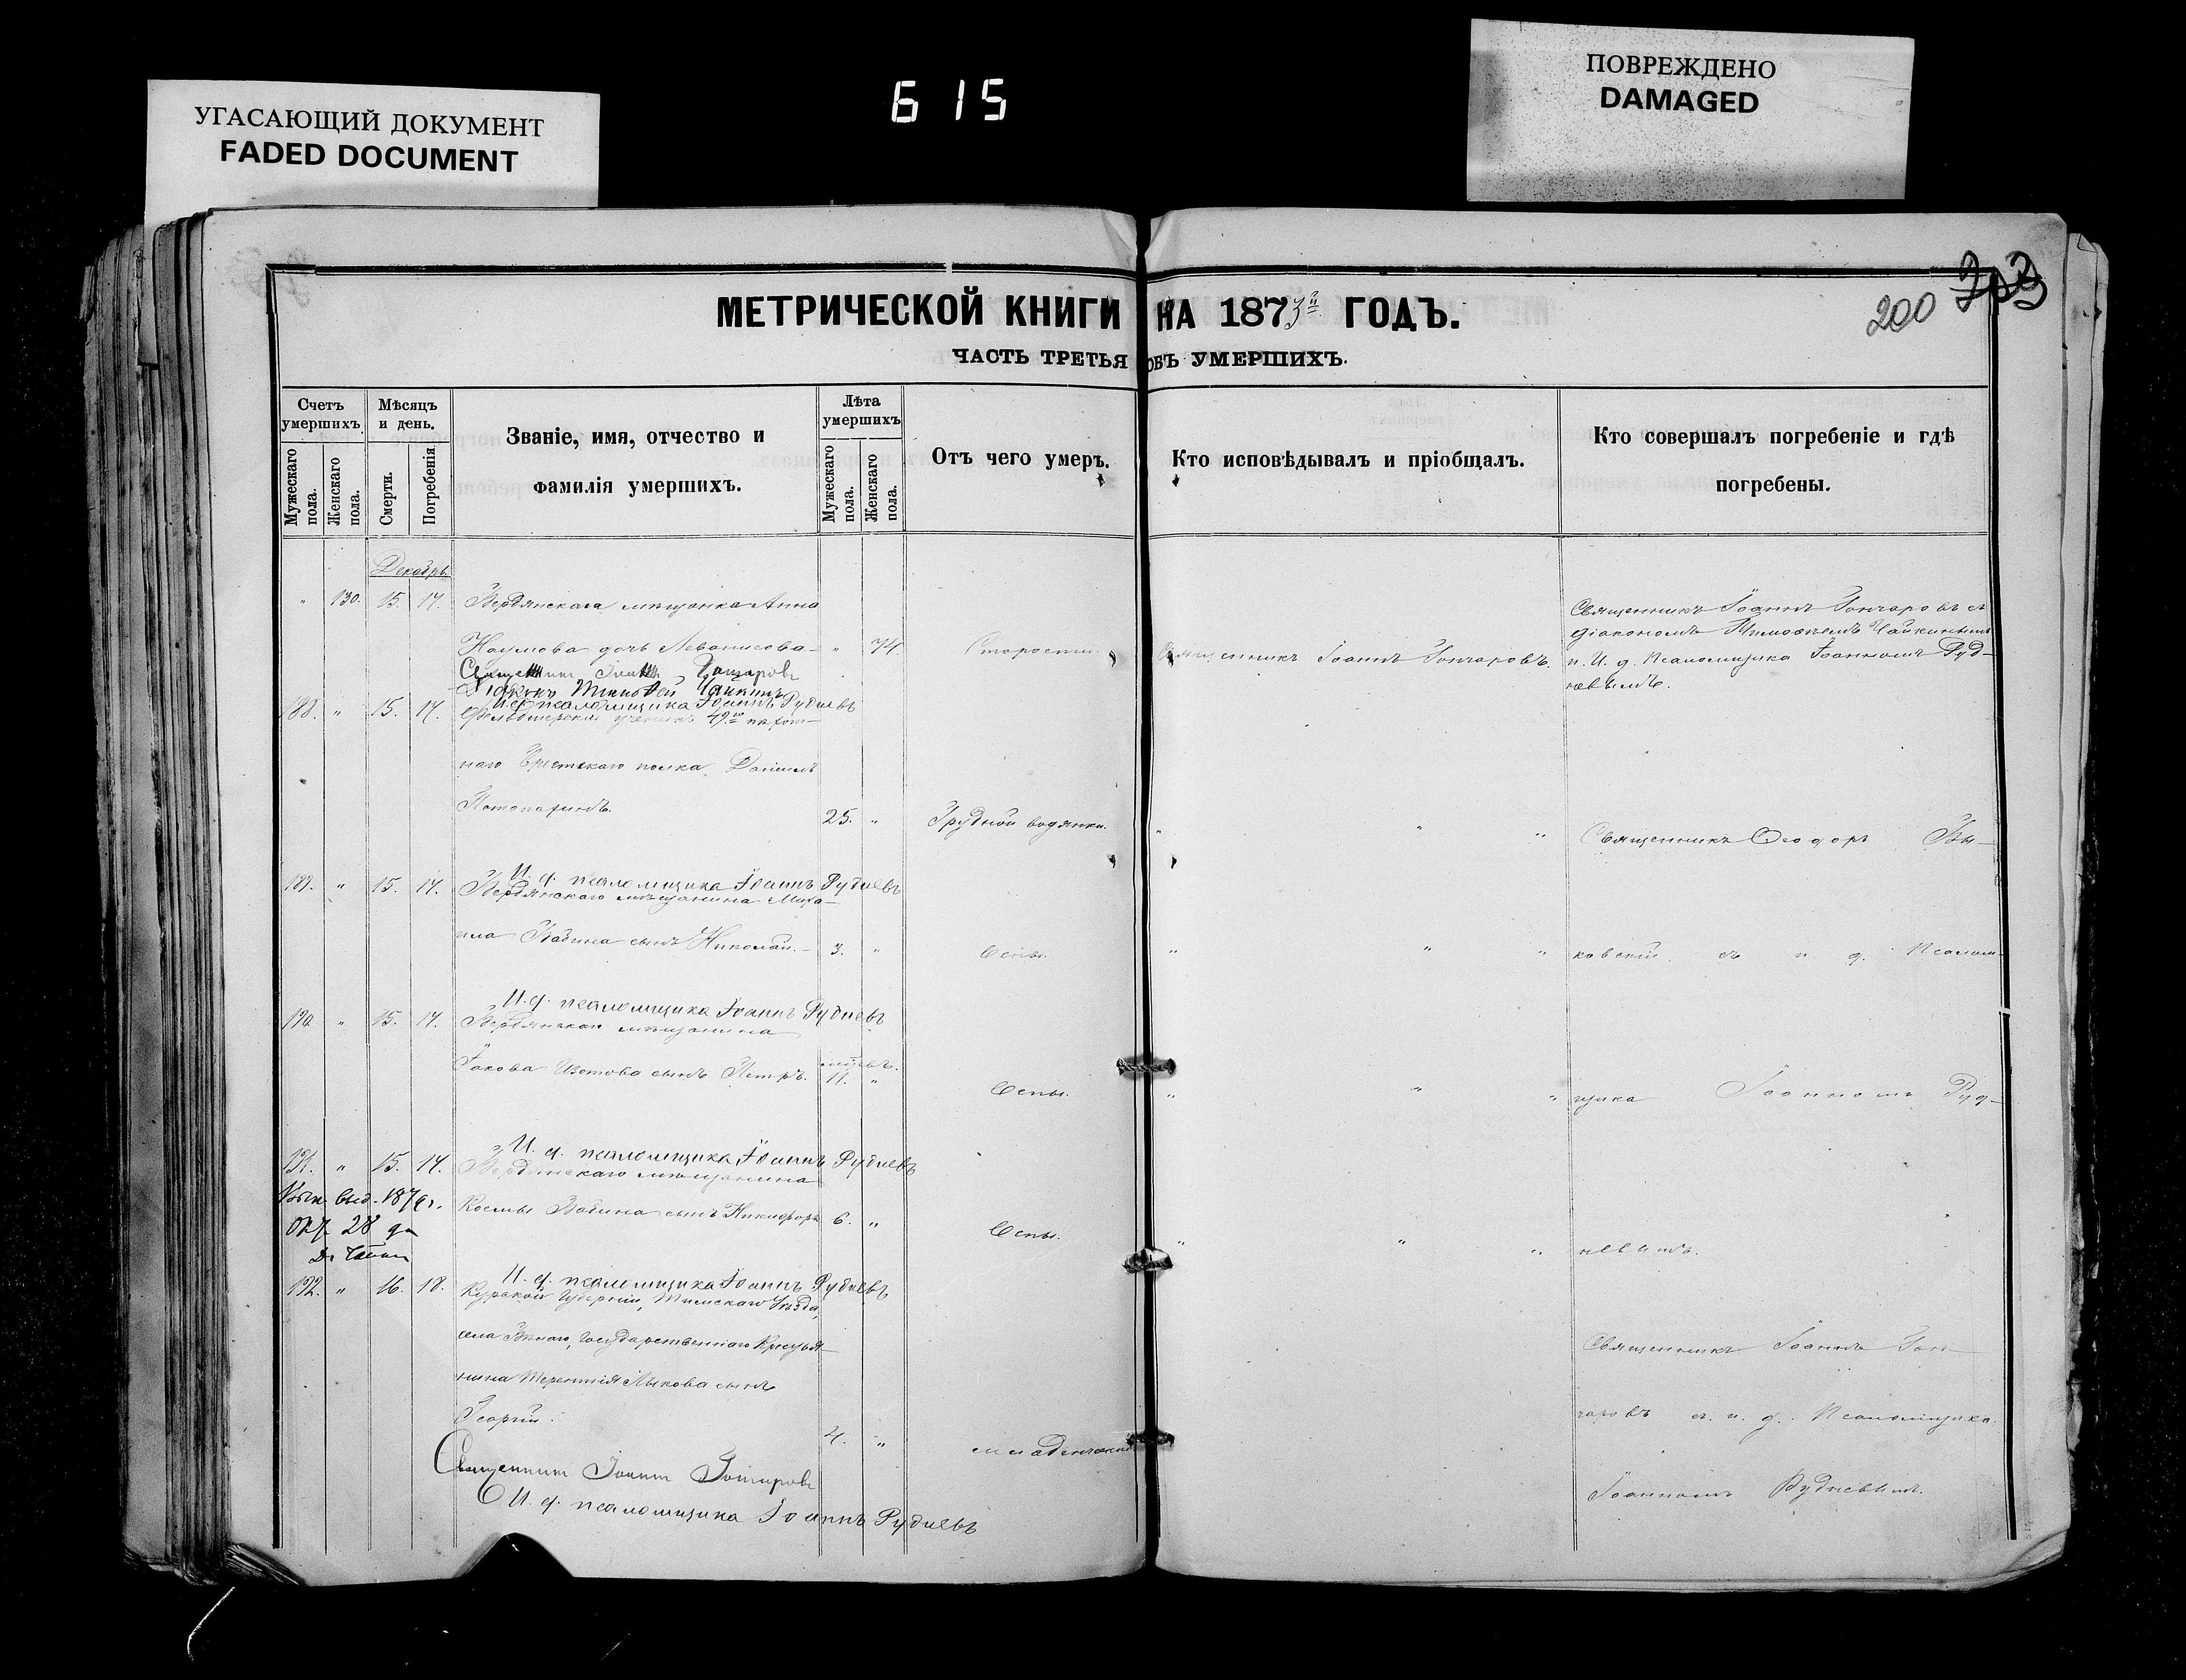 УГАСАЮЩИЙ ДОКУМЕНТ
FADED DOCUMENT
615
ПОВРЕЖДЕНО
DAMAGED
200
МЕТРИЧЕСКОЙ КНИГИ НА 1873й ГОДЪ.
ЧАСТЬ ТРЕТЬЯ ОБЪ УМЕРШИХЪ.
Счетъ умершихъ
Мужескаго пола.
Женскаго пола.
Мѣсяцъ и день.
Смерти.
Погребенія
Званіе, имя, отчество и
фамилія умершихъ.
Лѣта умершихъ
Мужескаго пола.
Женскаго пола.
Отъ чего умеръ.
Кто исповѣдывалъ и пріобщалъ.
Кто совершалъ погребеніе и гдѣ
погребены.
Декабрь.
" 130. 15. 17. Бердянскага мѣщанка Анна
Наумова дочь " 74. Старости Священникъ Іоаннъ Гончаровъ.
Священникъ Іоаннъ Гончаровъ съ
діакономъ Тимоѳеемъ Чайкинымъ
и. И. д. Псаломщика Іоанномъ Руд-
невымъ.
Священникъ Іоаннъ Гончаровъ
Діаконъ Тимоѳей Чайкинъ
И д псаломщика Іоаннъ Рудневъ
188. " 15. 17. Фельдшерскій ученикъ 49го пѣхот-
наго Брестскаго полка Даніилъ
25. " Грудной водянки. " " "
Священникъ Ѳеодоръ Вы-
И. д. псаломщика Іоаннъ Рудневъ
189. " 15. 17. Бердянскаго мѣщанина Миха-
ила Бабина сынъ Николай. 3. " Оспы. " " "
ковскій съ и. д. Псалом-
И. д. псаломщика Іоаннъ Рудневъ
190 " 15. 17. Бердянскаго мѣщанина
Іакова сынъ Петръ. мѣсяцъ. 11. " Оспы. " " "
щика Іоанномъ Руд-
И. д. псаломщика Іоаннъ Рудневъ
191. " 15. 17. Бердянскаго мѣщанина
Космы сынъ Никифоръ 6. " Оспы. " " "
невымъ.
выд. 1876 г.
28
И. д. псаломщика Іоаннъ Рудневъ
192. " 16. 18. Курской Губерніи, Тимскаго Уѣзда,
села Бѣлаго, Государственнаго Крестья-
нина Терентія Лыкова сынъ
Георгій. 4. " младенческой
Священникъ Іоаннъ Гон-
чаровъ съ и. д. Псаломщика
Іоанномъ Рудневымъ.
Священникъ Іоаннъ Гончаровъ
И. д. псаломщика Іоаннъ Рудневъ